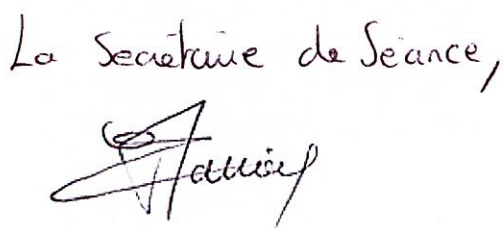 La Secrétaire de Séance,